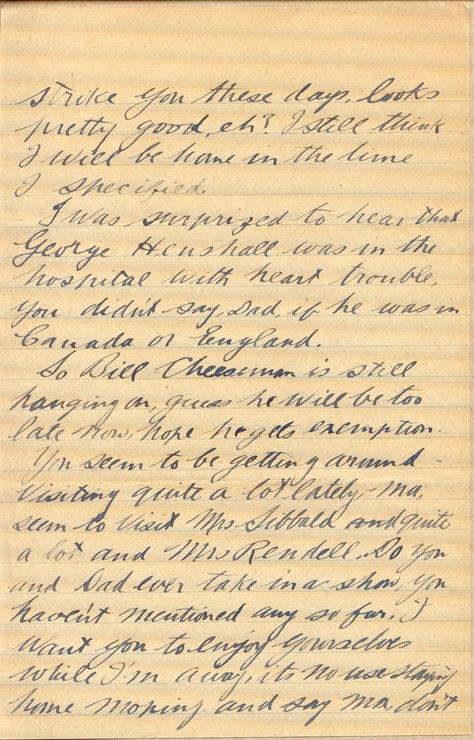 strike you these days, looks
pretty good, eh? I still think
I will be home in the time
I specified.
I was surprized to hear that
George Henshall was in the
hospital with heart trouble,
you didn't say, Dad, if he was in
Canada or England.
So Bill Cheeseman is still
hanging on, guess he will be too
late now, hope he gets exemption.
You seem to be getting around
visiting quite a lot lately Ma,
seem to visit Mrs Sibbald and quite
a lot and Mrs Rendell. Do you
and Dad ever take in a show, you
haven't mentioned any so far, I
want you to enjoy yourselves
while I'm away, its no use staying
home moping and say Ma, don't